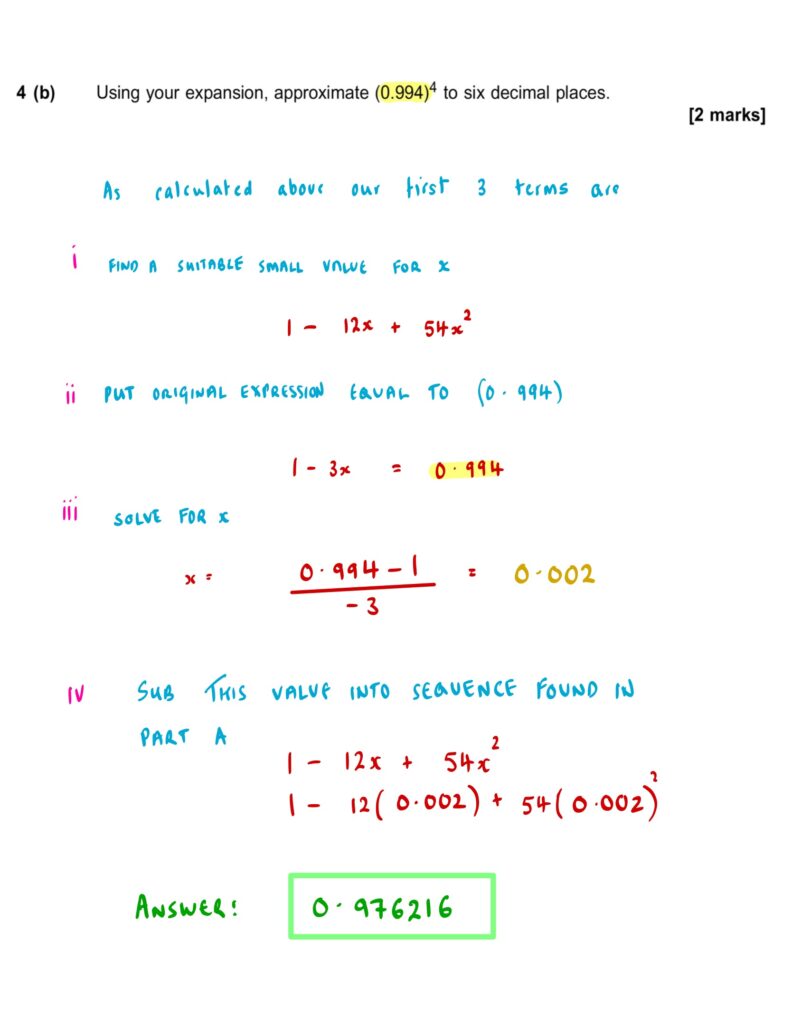 4 (b) Using your expansion, approximate (0.994)⁴ to six decimal places.
[2 marks]
As calculated above our first 3 terms are
i FIND A SUITABLE SMALL VALUE FOR x
1 - 12x + 54x²
ii PUT ORIGINAL EXPRESSION EQUAL TO (0.994)
1 - 3x = 0.994
iii SOLVE FOR x
x = (0.994 - 1)/(-3) = 0.002
IV SUB THIS VALUE INTO SEQUENCE FOUND IN
PART A
1 - 12x + 54x²
1 - 12(0.002) + 54(0.002)²
ANSWER: 0.976216